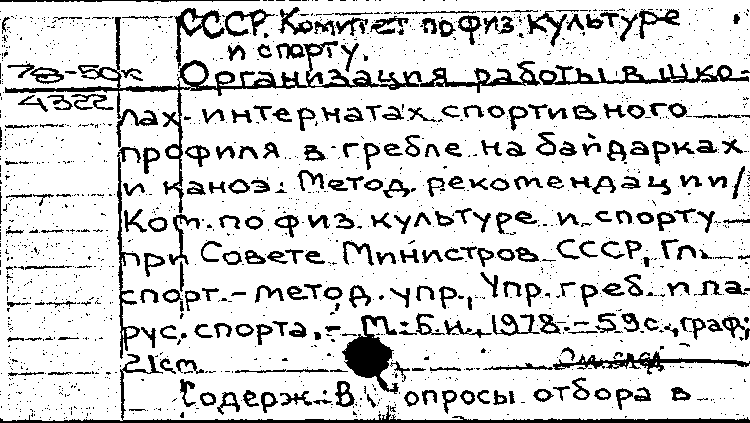 СССР. Комитет по физ. культуре
и спорту.
78-50к
Организация работы в шко-
4322
лах-интернатах спортивного
профиля в гребле на байдарках
и каноэ: Метод. рекомендации/
Ком. по физ. культуре и спорту
при Совете Министров СССР, Гл.
спорт.-метод. упр., Упр. греб. и па-
рус. спорта.- М.: Б.и., 1978.-59с., граф;
21cm
См. след
Содерж.: Вопросы отбора в